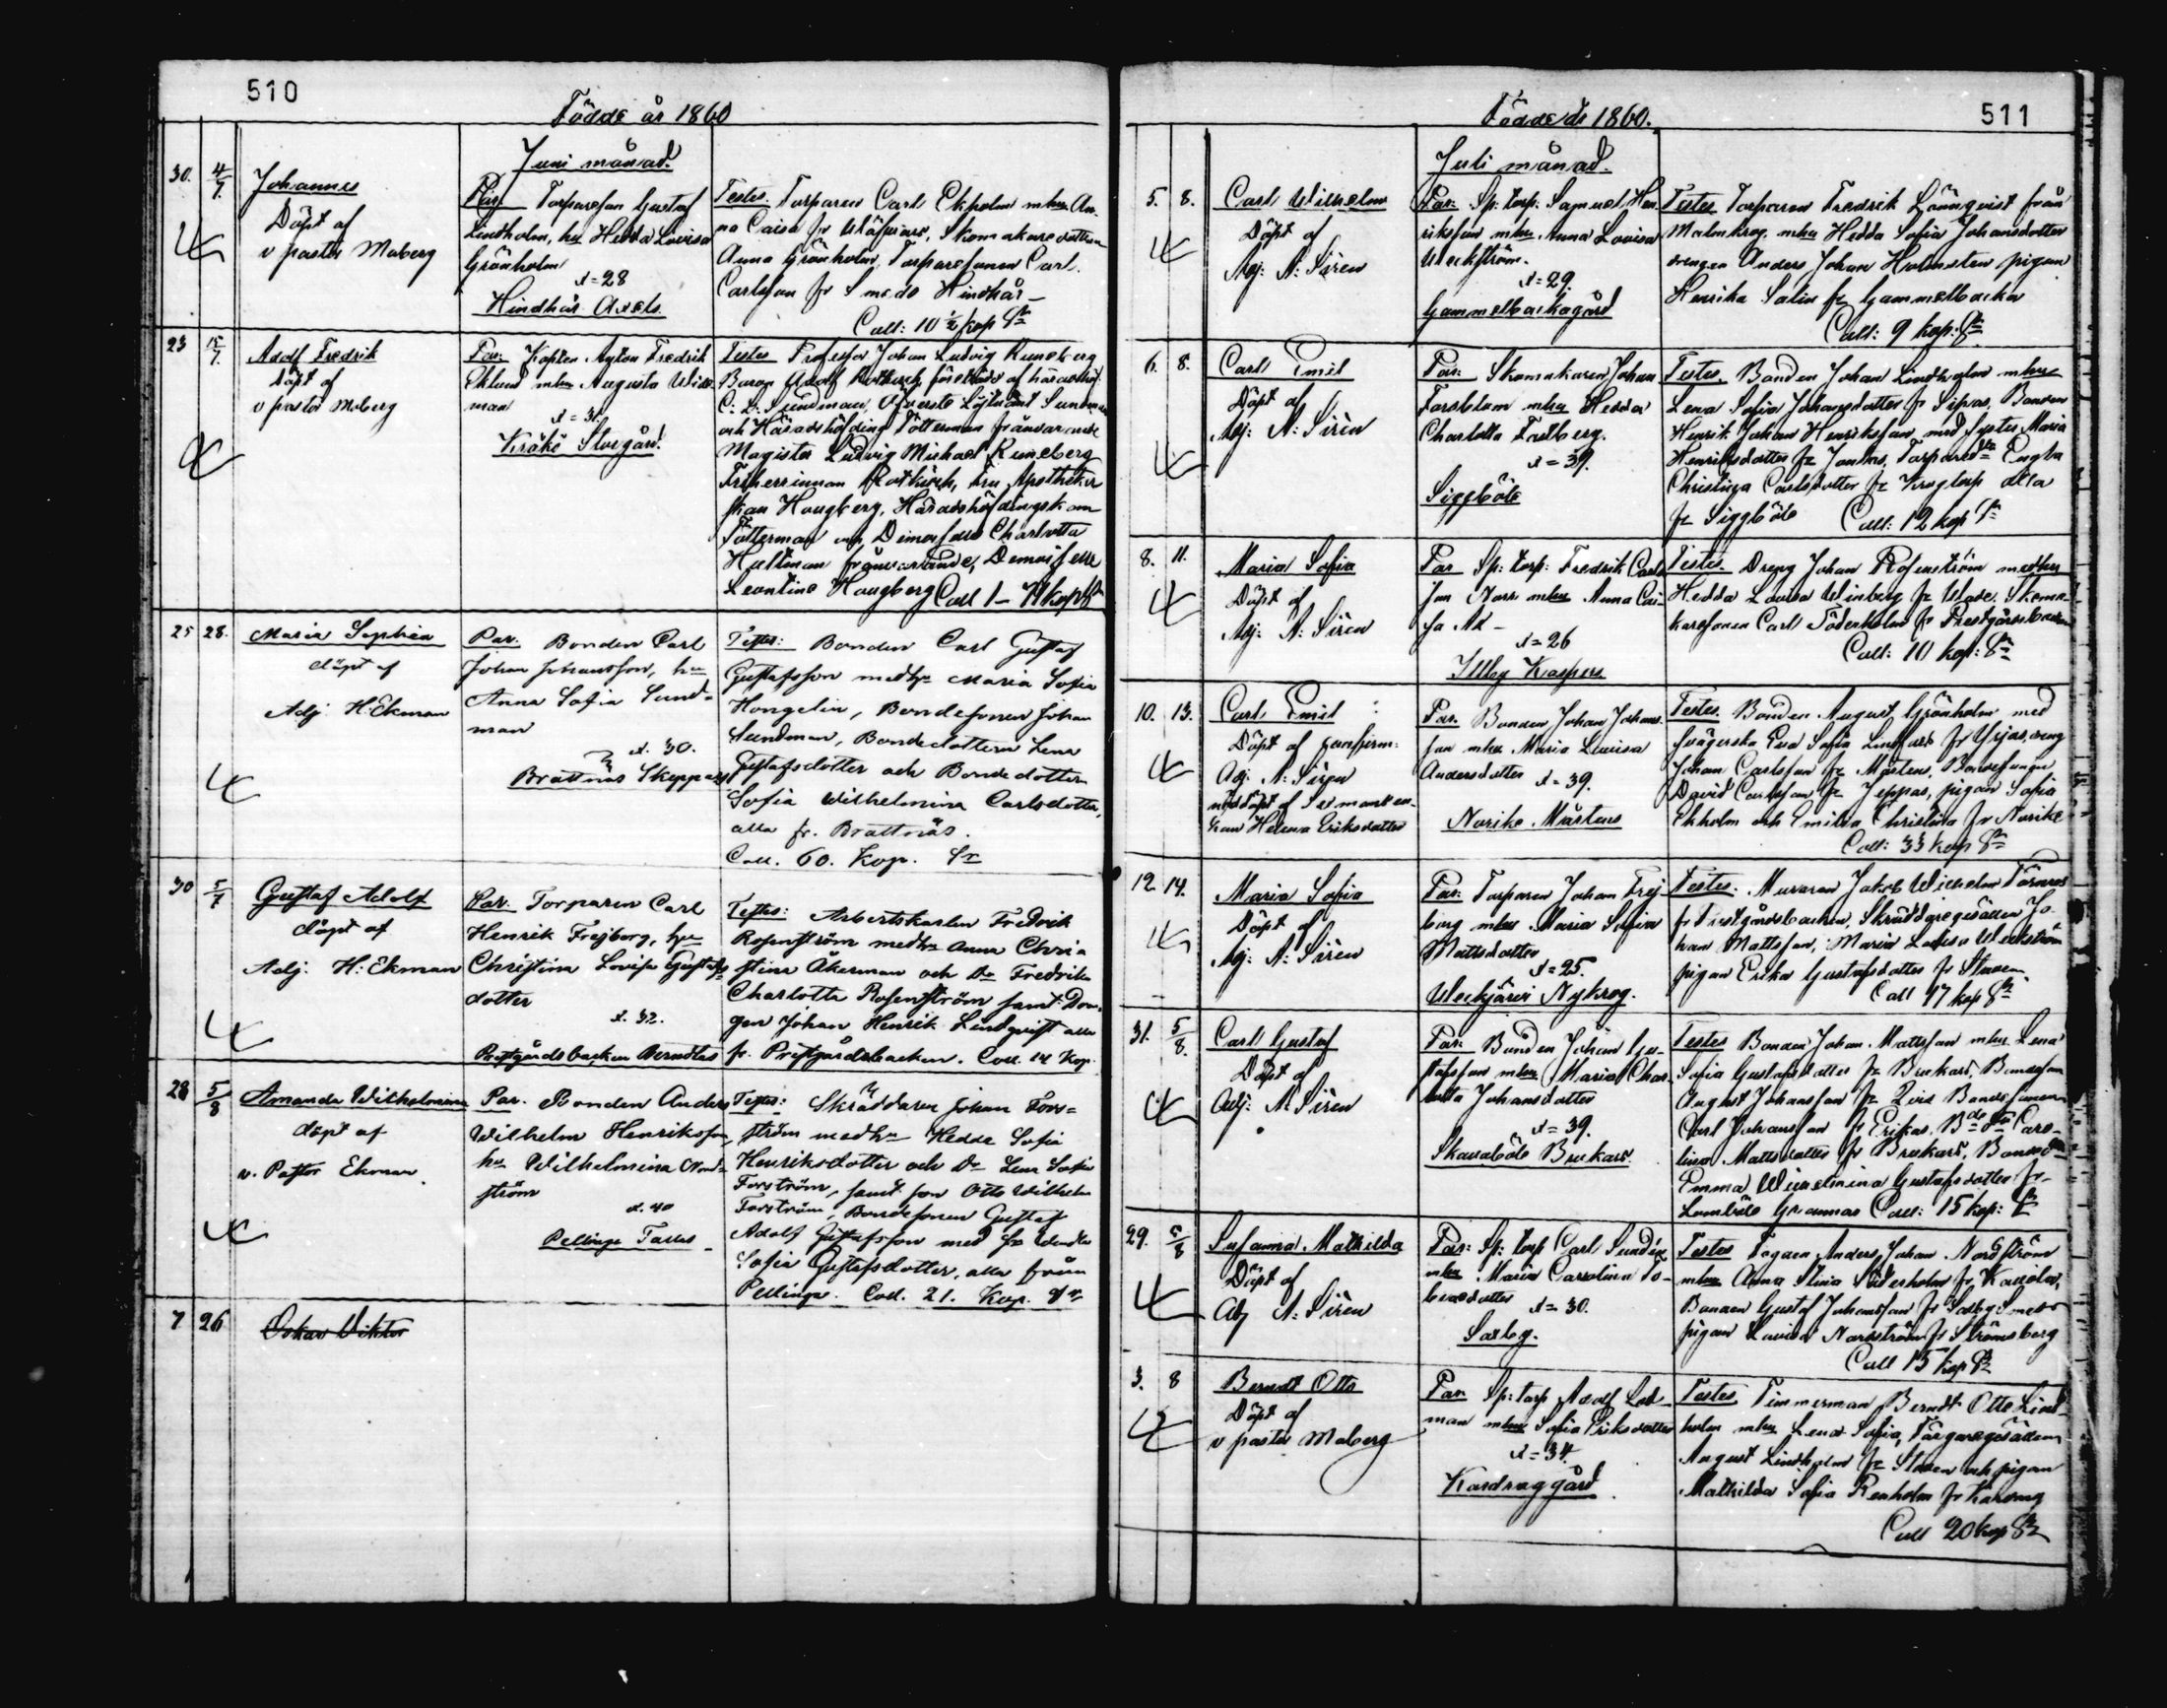 510
Födde år 1860
Juni månad.
30. 4/7. Johannes
Döpt af
v pastor Moberg
Par Torparesonen Gustaf
Lindholm, hu Hedda Lovisa
Grönholm
d=28
Hindhår Axels.
Testes. Torparen Carl Ekholm m hu An-
na Caisa fr
Skomakaredottren
Anna Grönholm, Torparesonen Carl
Carlsson fr Smeds Hindhår –
Coll: 10 ½ kop Sr
23 15/7. Adolf Fredrik
Döpt af
v pastor Moberg
Par: Kapten Fredrik
Eklund m hu Augusta Wid-
man
d=31.
Kråkö Storgård.
Testes Professor Johan Ludvig Runeberg
Baron Adolf Rotkirch, företrädd af häradshöf
C: L: Sundman, Öfverste Löjtnant Sundman
och Häradshöfding Tötterman frånvarande
Magister Ludvig Michael Runeberg
Friherrinnan Rotkirch, Fru Apothekar
skan Hougberg, Häradshöfdingskan
Tötterman och Demoiselle Charlotta
Hultman frånvarande, Demoiselle
Leontine Hougberg Coll 1– kop
25 28. Maria Sophia
döpt af
Adj H: Ekman
Par. Bonden Carl
Johan Johansson, hu
Anna Sofia Sund-
man
d. 30.
Brattnäs Skeppars
Testes: Bonden Carl Gustaf
Gustafsson med hu Maria Sofia
Hongelin, Bondesonen Johan
Sundman, Bondedottern Lena
Gustafsdotter och Bondedottern
Sofia Wilhelmina Carlsdotter,
alla fr. Brattnäs.
Coll. 60. Kop. Sr
30 5/7 Gustaf Adolf
döpt af
Adj. H: Ekman
Par. Torparen Carl
Henrik Frejborg, hu
Christina Lovisa Gustafs
dotter
d. 32.
Prestgårdsbacken Berndtas
Testes: Arbetskarlen Fredrik
Rosenström med hu Anna Chri
stina Åkerman och Dr Fredrika
Charlotta Rosenström samt Dren-
gen Johan Henrik Lindqvist alla
fr. Prestgårdsbacken. Coll. 14 Kop.
28 5/8 Amanda Wilhelmina
döpt af
v. Pastor Ekman
Par. Bonden Anders
Wilhelm Henriksson,
hu Wilhelmina Nord-
ström
d. 40
Pellinge Tallas
Testes: Skräddaren Johan Fors=
ström med hu Hedda Sofia
Henriksdotter och Dr Lena Sofia
Forström, samt son Otto Wilhelm
Forström, Bondesonen Gustaf
Adolf Gustafsson med
Sofia Gustafsdotter, alla från
Pellinge. Coll. 21. Kop. Sr
7 26 Oskar Viktor
Födde år 1860.
511
Juli månad.
5. 8. Carl Wilhelm
Döpt af
Adj: A: Sirén
Par: Sp: torp: Samuel Hen-
riksson m hu Anna Lovisa
Weckström.
d=29.
Gammelbackagård
Testes Torparen Fredrik Lönnqvist från
Malmkrog, m hu Hedda Sofia Johansdotter
drengen Anders Johan Holmsten pigan
Henrika Salin fr Gammelbacka
Coll: 9 kop: Sr
6. 8. Carl Emil
Döpt af
Adj: A: Sirén
Par: Skomakaren Johan
Forsblom m hu Hedda
Charlotta Forsberg.
d=39.
Siggböle
Testes. Bonden Johan Lindholm m hu
Lena Sofia Johansdotter fr Sipas, Bonden
Henrik Johan Henriksson med syster Maria
Henriksdotter fr Jontas, Torparedr Engla
Christina Carlsdotter fr Krogtorp alla
fr Siggböle Coll: 12 kop Sr
8. 11. Maria Sofia
Döpt af
Adj: A: Sirén
Par Sp: torp: Fredrik Carls-
son Norr m hu Anna Cai-
sa Ad –
d=26
Illby Kaspers
Testes. Dreng Johan Rosenström med hu
Hedda Lovisa Winberg fr
Skoma-
karesonen Carl Söderholm fr Prestgårdsbacken
Coll: 10 kop: Sr
10. 13. Carl Emil
Döpt af
Adj: A: Sirén
nöddöpt af
Helena Eriksdotter
Par. Bonden Johan Johans-
son m hu Maria Lovisa
Andersdotter d=39.
Norike Mårtens
Testes. Bonden August Grönholm med
svägerska Eva Sofia Lindfors fr Yrjas, dreng
Johan Carlsson fr Mårtens, Bondesonen
David Carlsson fr Jeppas, pigan Sofia
Ekholm och Emilia Christina fr Norike
Coll: 33 kop Sr
12 14. Maria Sofia
Döpt af
Adj: A: Sirén
Par: Torparen Johan Frej-
borg m hu Maria Sofia
Mattsdotter
d=25.
Weckjärvi Nykrog.
Testes. Muraren Jakob Wilhelm Törnroos
fr Prestgårdsbacken, Skräddaregesällen Jo-
han Mattsson, Maria Lovisa Weckström
pigan Erika Gustafsdotter fr Staden
Coll 17 kop Sr
31. 5/8. Carl Gustaf
Döpt af
Adj: A: Sirén
Par: Bonden Johan Gu-
stafsson m hu Maria Char-
lotta Johansdotter
d=39.
Skavaböle Brukars.
Testes Bonden Johan Mattsson m hu Lena
Sofia Gustafsdotter fr Brukars, Bondeson
August Johansson fr
Bondesonen
Carl Johansson fr Erikas, Caro-
lina Mattsdotter fr Brukars,
Emma Wilhelmina Gustafsdotter fr
Lomböle Grannas Coll: 15 kop:
29. 5/8 Susanna Mathilda
Döpt af
Adj A: Sirén
Par: Sp: torp Carl Sundén
m hu Maria Carolina To-
biasdotter
d=30.
Saxby.
Testes Anders Johan Nordström
m hu Anna Stina Söderholm fr
Bonden Gustaf Johansson fr Saxby Smeds
pigan Lovisa Nordström fr Strömsberg
Coll 15 kop Sr
3. 8 Berndt Otto
Döpt af
v pastor Moberg
Par Sp: torp Adolf Lod-
man m hu Sofia Eriksdotter
d=34.
Kardraggård
Testes, Timmerman Berndt Otto Lind-
holm m hu Lena Sofia, Färgaregesällen
August Lindholm fr Staden och pigan
Mathilda Sofia Renholm fr
Coll 20 kop Sr